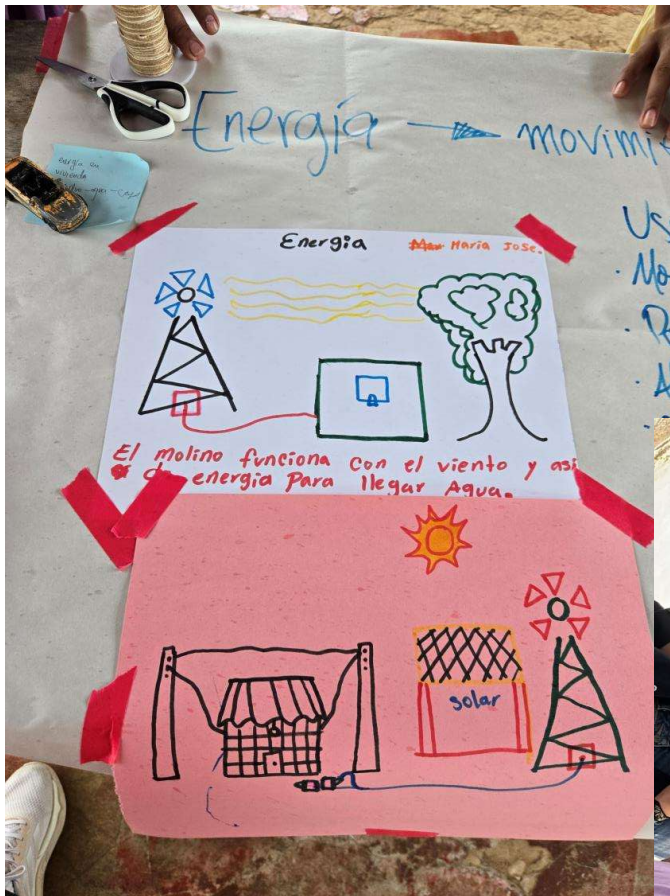 Energía → movimie
energia en
vivienda
Us
Mo
Energia
Maria Jose.
El molino funciona con el viento y asi
da energia Para llegar Agua.
solar